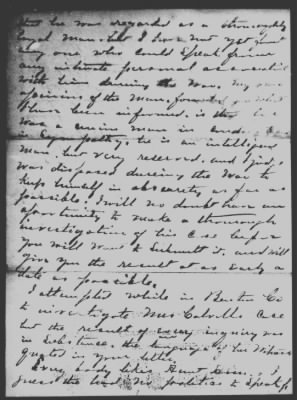 that he was regarded as a thoroughly
loyal man. but I have not yet found
any one who could speak from
any intimate personal association
with him during the War. My own
opinion of the man, from what
I have been informed, is that he
was a union man in and
in Sympathy. he is an intelligent
man, but very reserved, and I judge
was disposed during the War to
keep himself in obscurity as far as
possible. I will no doubt have an
opportunity to make a thorough
investigation of his case before
you will want to Submit it, and will
give you the result at as early a
date as possible.
I attempted while in Benton Co
to investigate Mrs Case
but the result of every inquiry was
in substance, the language of her Witness
quoted in your letter.
Every body likes Aunt
guess the has no politics to Speak of